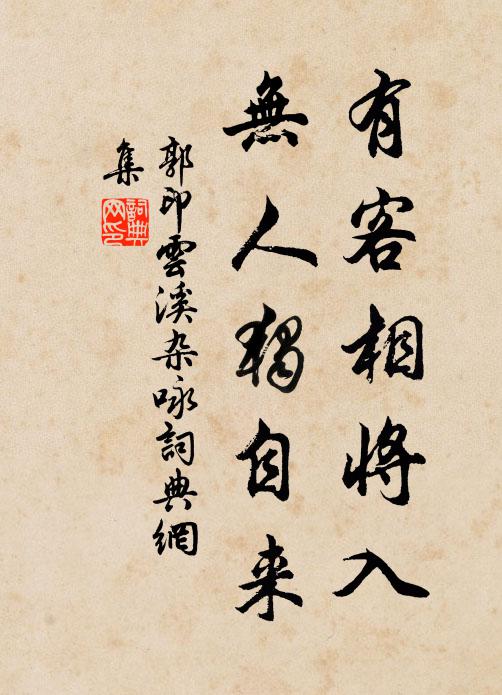 有客相將入
無人獨自来
郭印雲溪杂咏詞典網
集
詞典
网印